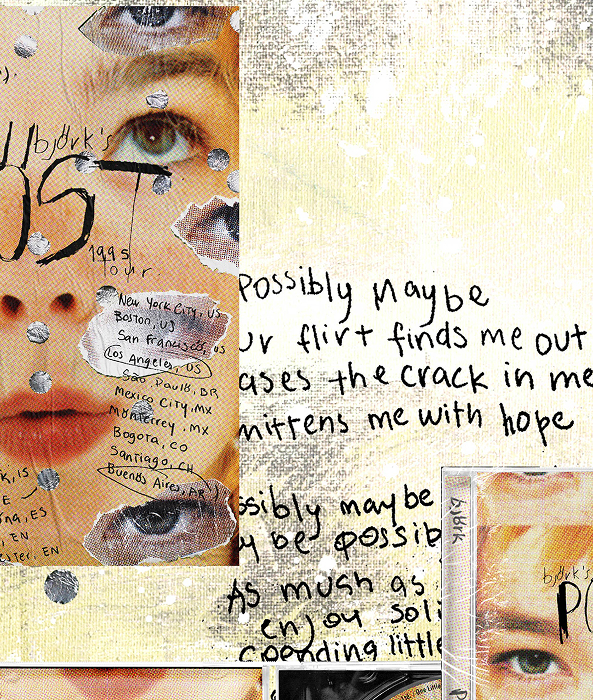 björk's
UST
1995
Tour.
New York City, US
Boston, US
San Francisco, US
Los Angeles, US
São Paulo, BR
Mexico City, MX
Monterrey, MX
Bogota, CO
Santiago, CH
Buenos Aires, AR
K, IS
E
na, ES
, EN
ester, EN
possibly maybe
ur flirt finds me out
ases the crack in me
mittens me with hope
ssibly maybe
y be possib
As mush as
enjoy soli
spending little
björk
björk's
PO